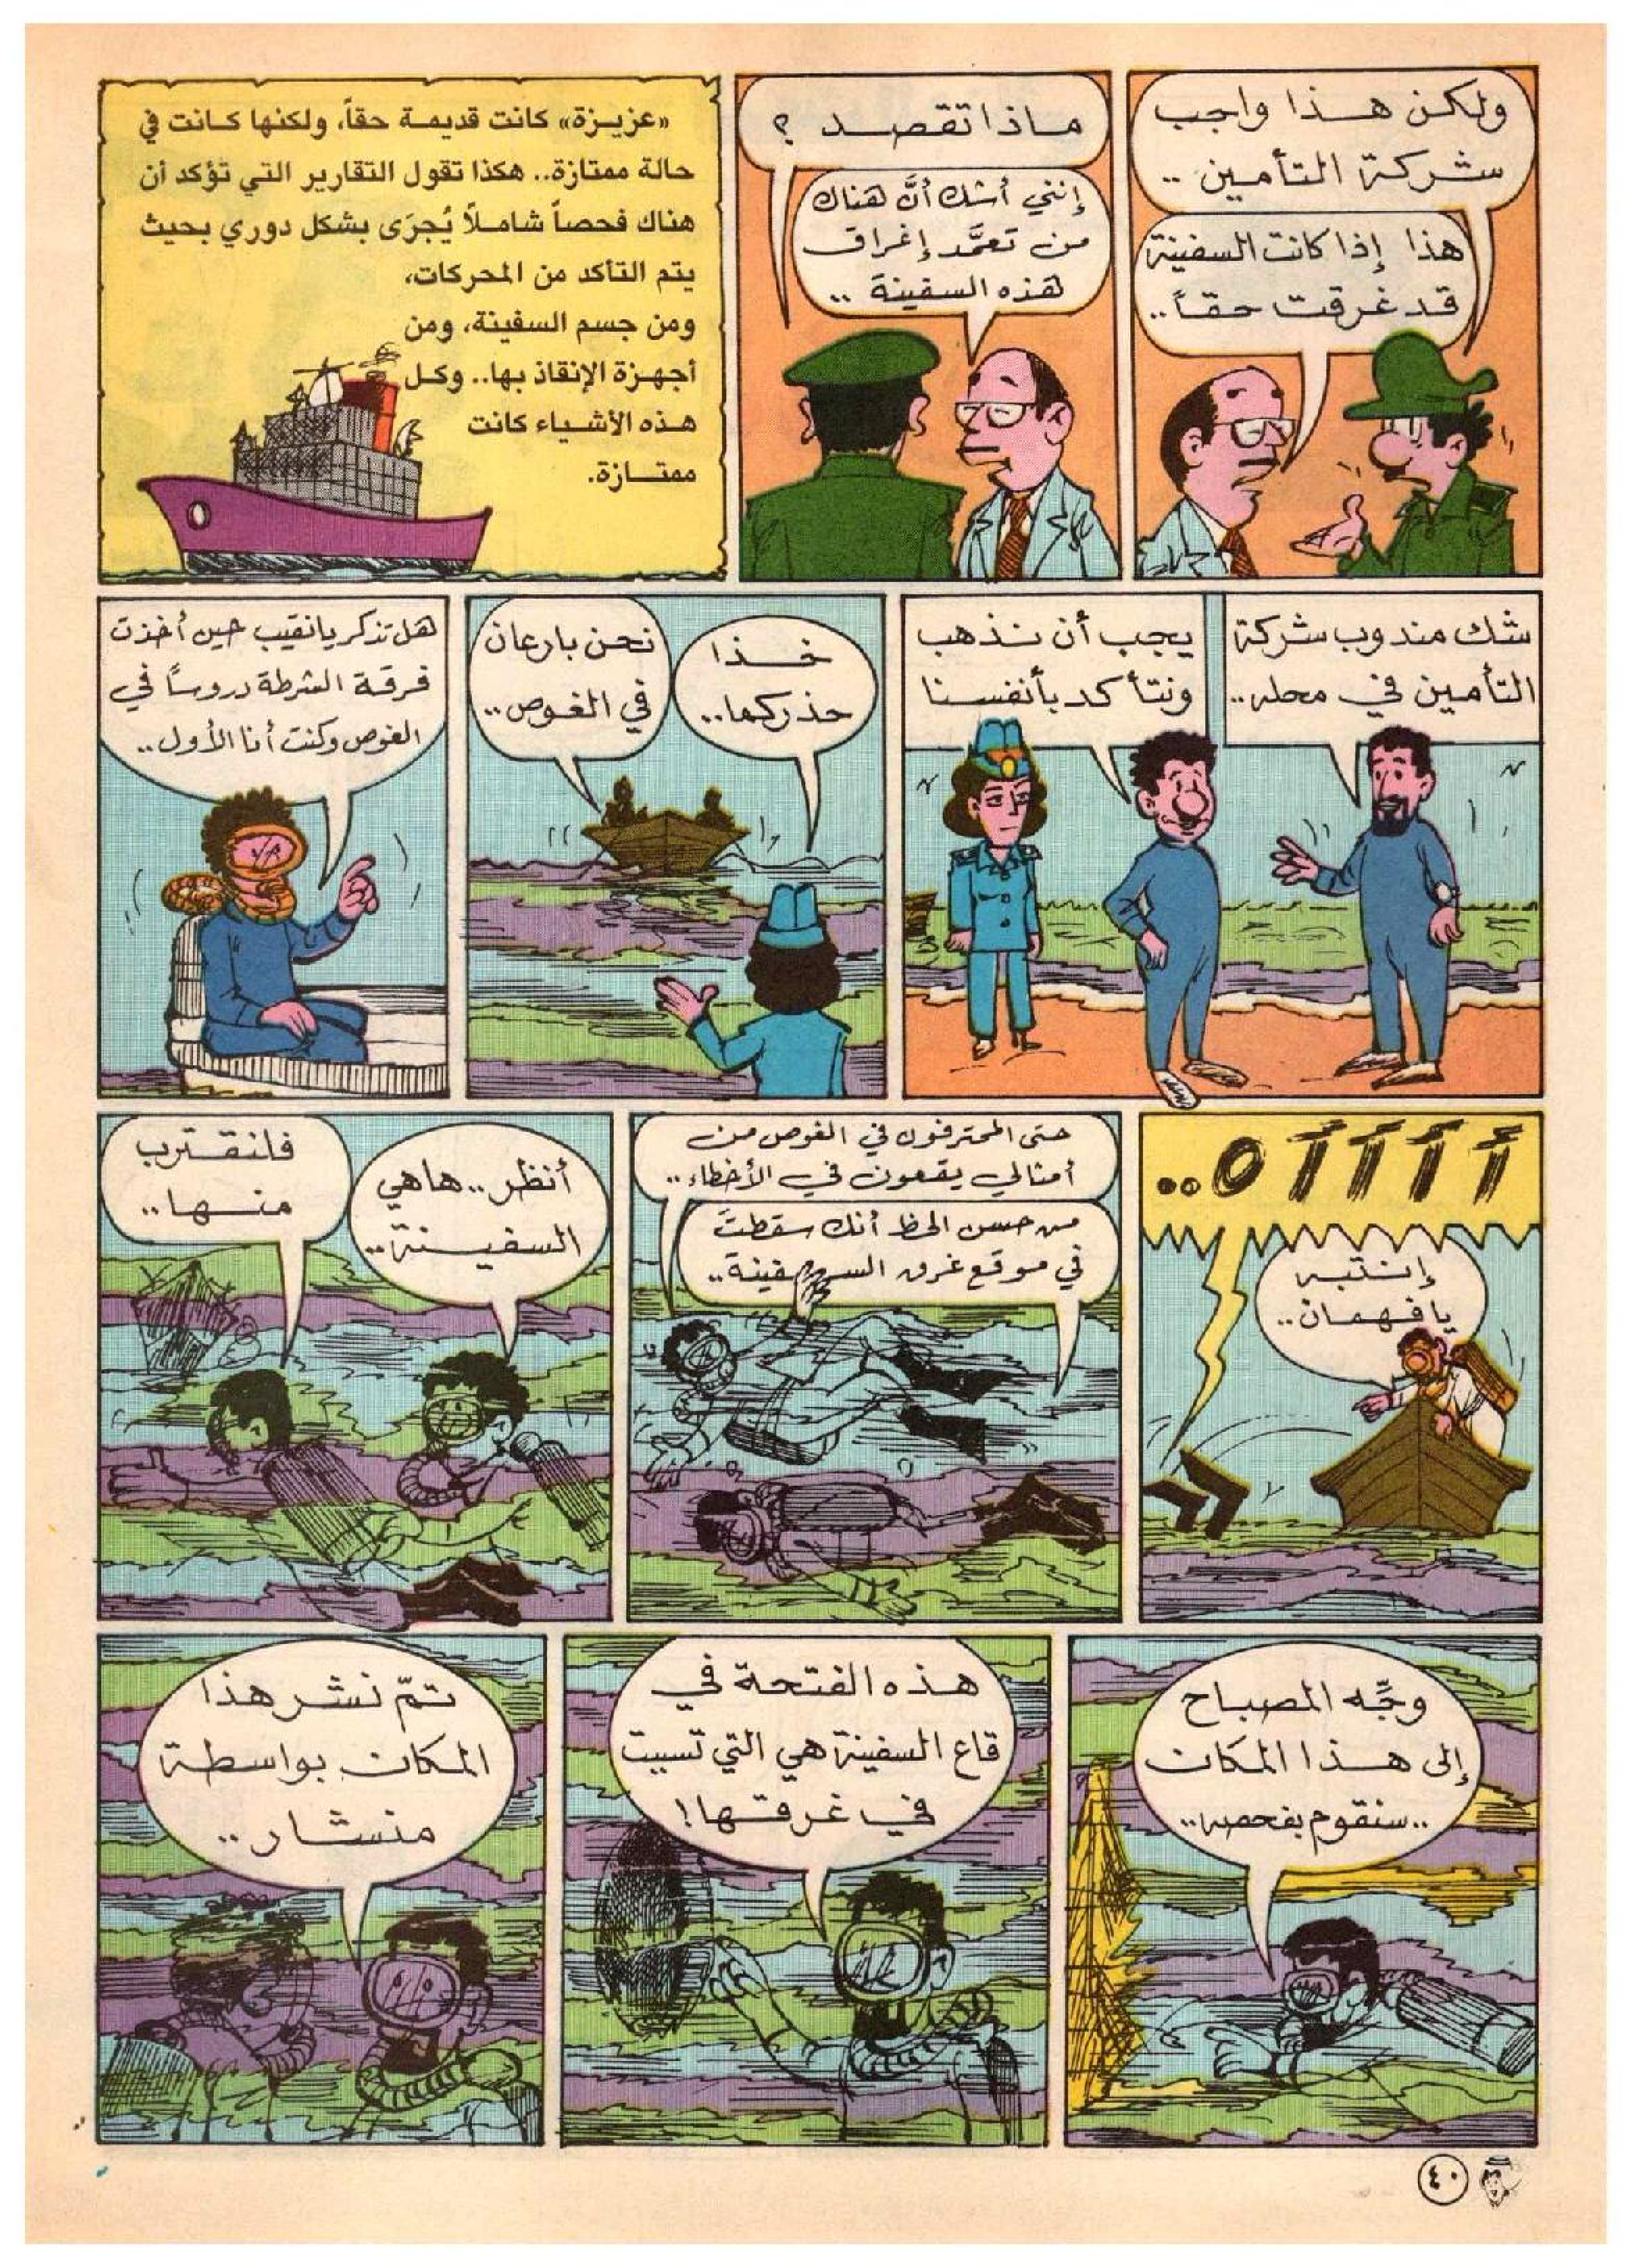 ولكن هذا واجب
شركة التأمين ..
هذا إذا كانت السفينة
قد غرقت حقاً ..
ماذا تقصد ؟
إنني أشك أنَّ هناك
من تعمَّد إغراق
هذه السفينة ..
«عزيزة» كانت قديمة حقاً، ولكنها كانت في
حالة ممتازة.. هكذا تقول التقارير التي تؤكد أن
هناك فحصاً شاملاً يُجرَى بشكل دوري بحيث
يتم التأكد من المحركات،
ومن جسم السفينة، ومن
أجهزة الإنقاذ بها.. وكل
هذه الأشياء كانت
ممتازة.
شك مندوب شركة
التأمين في محله..
يجب أن نذهب
ونتأكد بأنفسنا
خذا
حذركما..
نحن بارعان
في الغوص..
هل تذكر يا نقيب حين أخذت
فرقة الشرطة دروساً في
الغوص وكنت أنا الأول..
آآآآه..
إنتبه
يا فهمان..
حتى المحترفون في الغوص من
أمثالي يقعون في الأخطاء..
من حسن الحظ أنك سقطتَ
في موقع غرق السفينة..
أنظر.. ها هي
السفينة..
فلنقترب
منها..
وجِّه المصباح
إلى هذا المكان
..سنقوم بفحصه..
هذه الفتحة في
قاع السفينة هي التي تسببت
في غرقها!
تمّ نشر هذا
المكان بواسطة
منشار..
٤٠